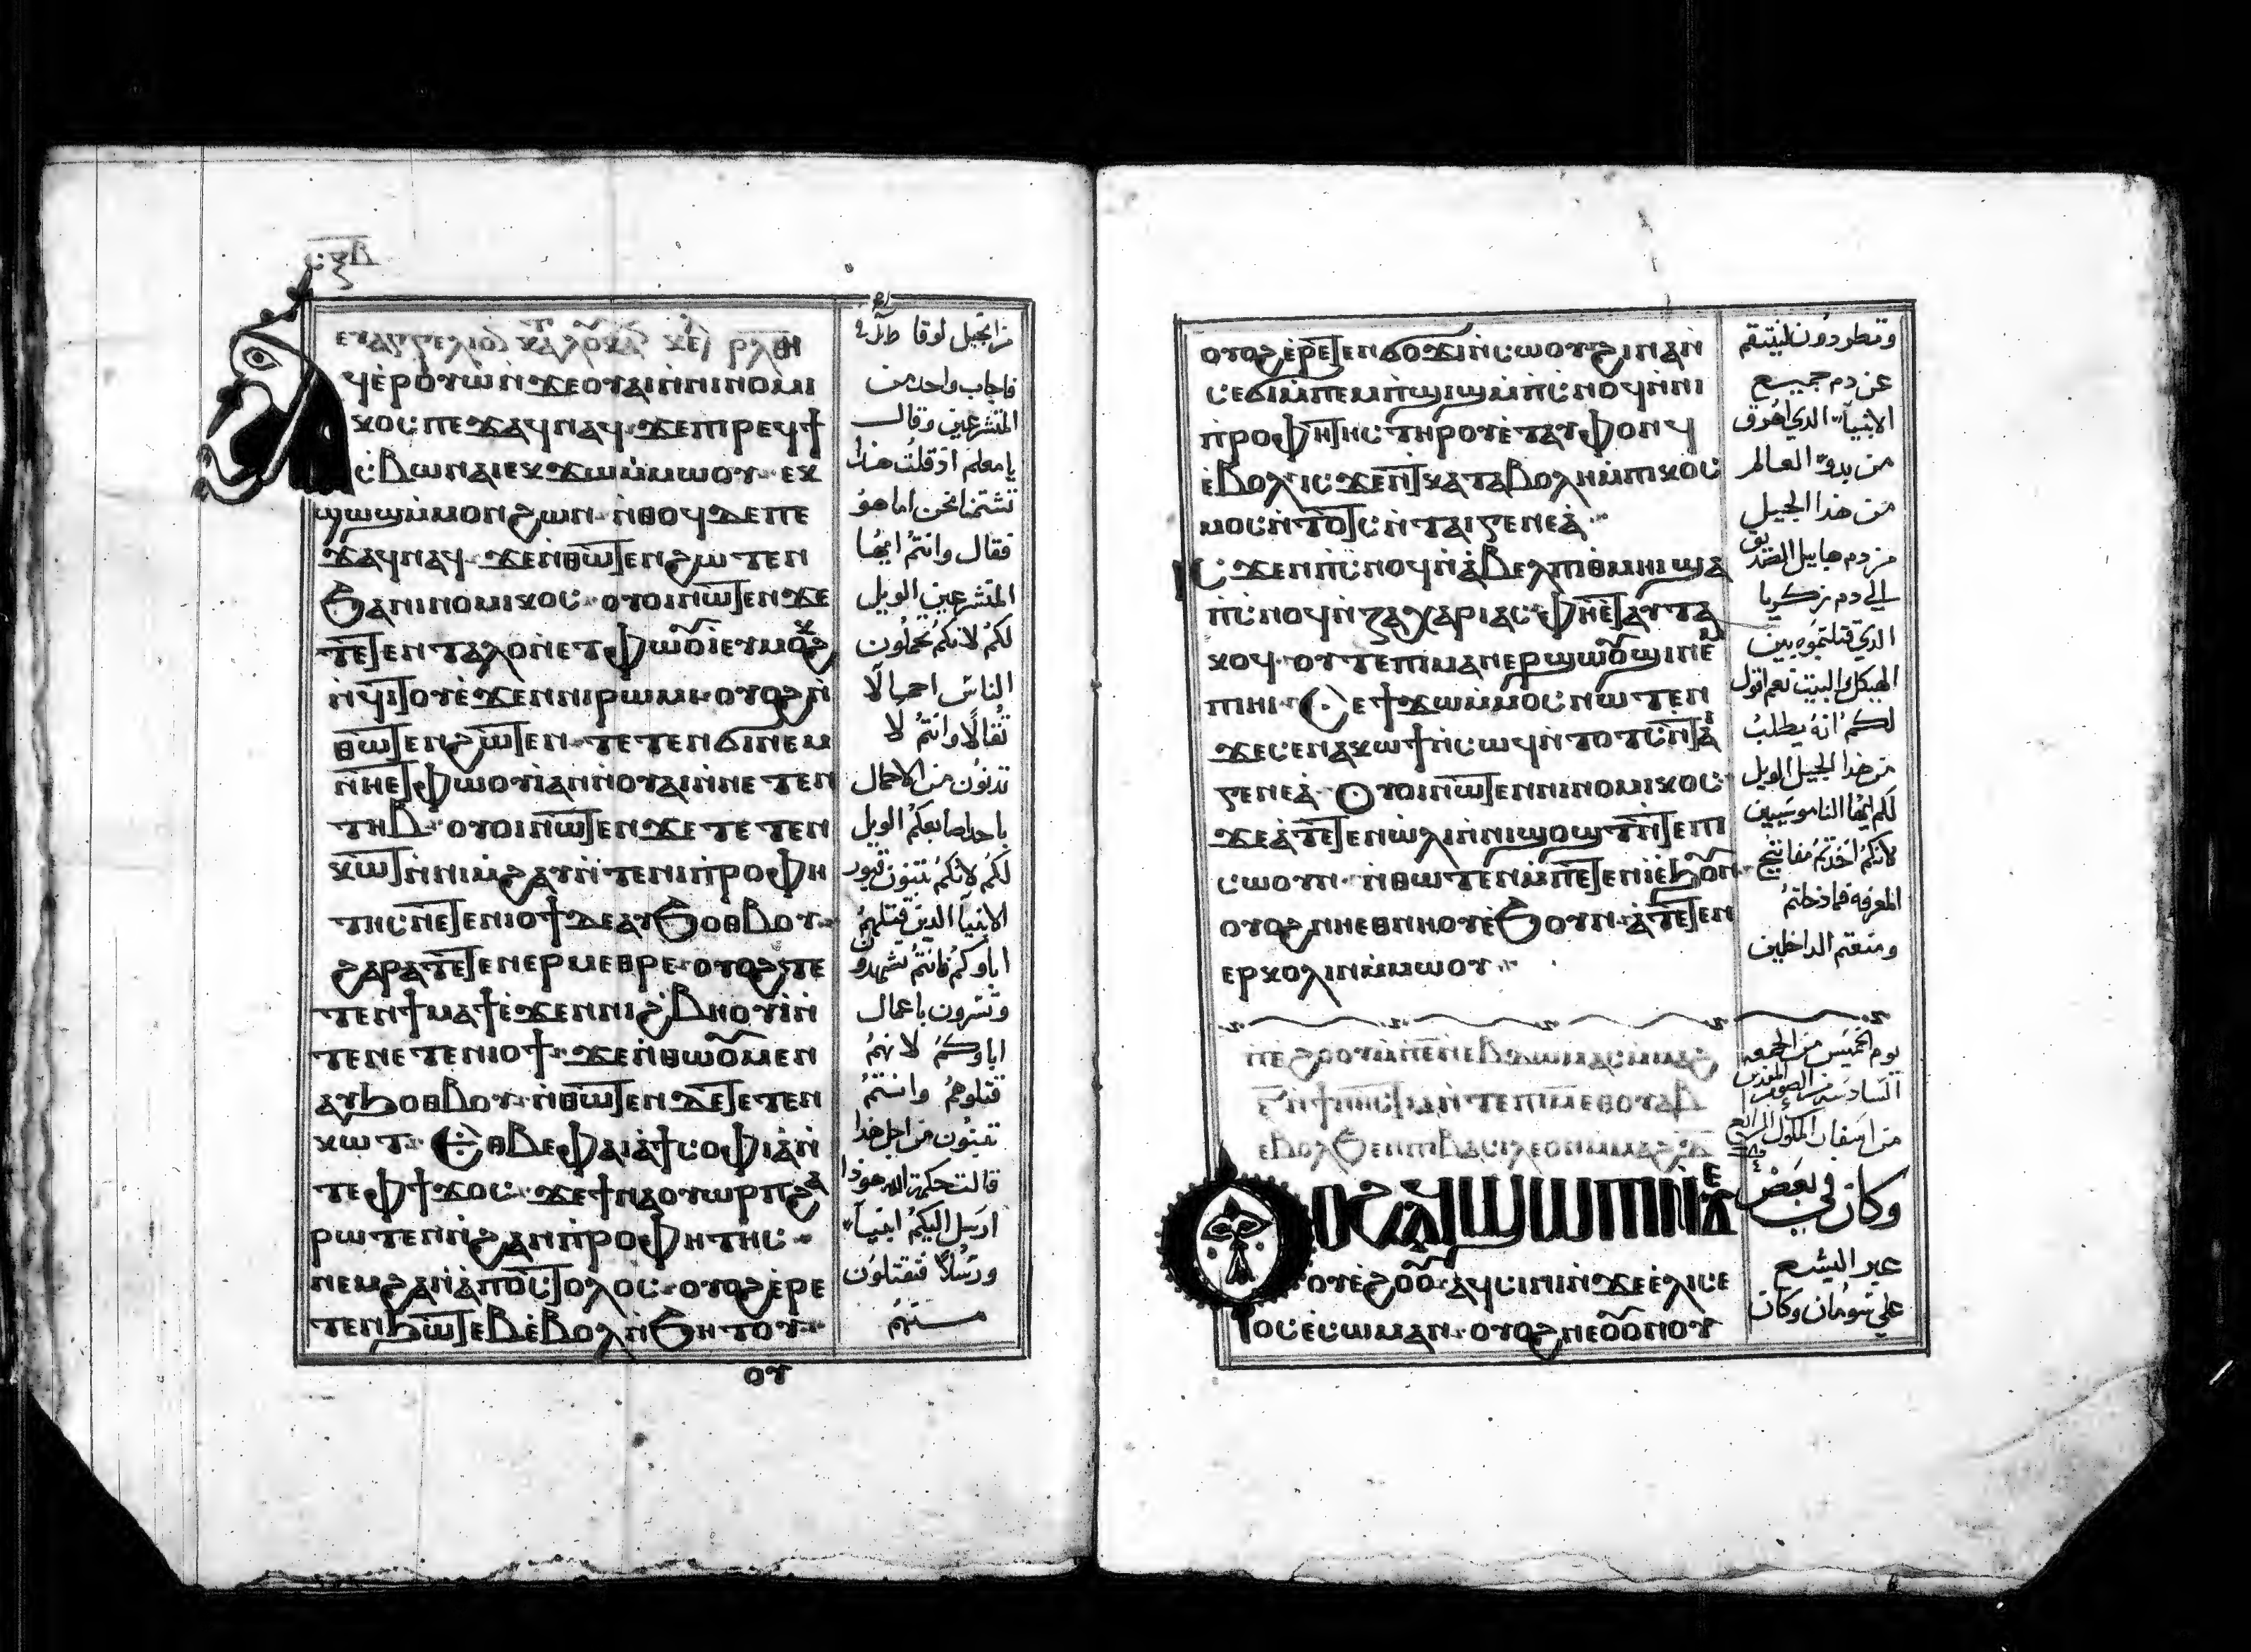 ⲥⲝⲃ
ⲉⲩⲁⲅⲅⲉⲗⲓⲟ ⲕⲁ ⲗⲟⲩⲕⲁ ⲕⲉ ⲣⲗⲏ
ϥⲉⲣⲟⲩⲱ ⲛϫⲉⲟⲩⲁⲓ ⲛⲛⲓⲛⲟⲙⲓ
ⲕⲟⲥ ⲡⲉϫⲁϥ ⲛⲁϥ ϫⲉ ⲡⲓⲣⲉϥϯ
ⲥⲃⲱ ⲛⲁⲓ ⲉⲕϫⲱ ⲙⲙⲱⲟⲩ ⲉⲕ
ϣⲱϣ ⲙⲙⲟⲛ ϩⲱⲛ ⲛⲑⲟϥ ⲇⲉ ⲡⲉ
ϫⲁϥ ⲛⲁϥ ϫⲉ ⲛⲑⲱⲧⲉⲛ ϩⲱⲧⲉⲛ
ϧⲁ ⲛⲓⲛⲟⲙⲓⲕⲟⲥ ⲟⲩⲟⲓ ⲛⲱⲧⲉⲛ ϫⲉ
ⲧⲉⲧⲉⲛⲧⲁⲗⲟ ⲛⲉⲧⲫⲱⲟⲩⲓ ⲉⲩⲙⲟⲕϩ
ⲛϥⲓⲧⲟⲩ ⲉϫⲉⲛ ⲛⲓⲣⲱⲙⲓ ⲟⲩⲟϩ ⲛ
ⲑⲱⲧⲉⲛ ϩⲱⲧⲉⲛ ⲧⲉⲧⲉⲛϭⲓⲛⲉⲙ
ⲛⲏⲉⲧⲫⲱⲟⲩⲓ ⲁⲛ ⲛⲟⲩⲁⲓ ⲛⲛⲉⲧⲉⲛ
ⲧⲏⲃ ⲟⲩⲟⲓ ⲛⲱⲧⲉⲛ ϫⲉ ⲧⲉⲧⲉⲛ
ⲕⲱⲧ ⲛⲛⲓⲙϩⲁⲩ ⲛⲧⲉ ⲛⲓⲡⲣⲟⲫⲏ
ⲧⲏⲥ ⲛⲉⲧⲉⲛⲓⲟϯ ⲇⲉ ⲁⲩϧⲟⲑⲃⲟⲩ
ϩⲁⲣⲁ ⲧⲉⲧⲉⲛⲉⲣⲙⲉⲑⲣⲉ ⲟⲩⲟϩ ⲧⲉ
ⲧⲉⲛϯⲙⲁϯ ⲉϫⲉⲛ ⲛⲓϩⲃⲏⲟⲩⲓ ⲛ
ⲧⲉ ⲛⲉⲧⲉⲛⲓⲟϯ ϫⲉ ⲛⲑⲱⲟⲩ ⲙⲉⲛ
ⲁⲩϧⲟⲑⲃⲟⲩ ⲛⲑⲱⲧⲉⲛ ⲇⲉ ⲧⲉⲧⲉⲛ
ⲕⲱⲧ ⲉⲑⲃⲉ ⲫⲁⲓ ⲁ ϯⲥⲟⲫⲓⲁ ⲛ
ⲧⲉ ⲫϯ ϫⲟⲥ ϫⲉ ϯⲛⲁⲟⲩⲱⲣⲡ ϩⲁ
ⲣⲱⲧⲉⲛ ⲛϩⲁⲛⲡⲣⲟⲫⲏⲧⲏⲥ
ⲛⲉⲙ ϩⲁⲛⲁⲡⲟⲥⲧⲟⲗⲟⲥ ⲟⲩⲟϩ ⲉⲣⲉ
ⲧⲉⲛϧⲱⲧⲉⲃ ⲉⲃⲟⲗ ⲛϧⲏⲧⲟⲩ
ⲟⲩ
من انجيل لوقا
فاجاب واحد من
المتشرعين وقال
يا معلم اذ قلت هذا
تشتمنا نحن اما هو
فقال وانتم ايها
المتشرعين الويل
لكم لانكم تحملون
الناس احمالا
ثقالا وانتم لا
تدنون من الاحمال
باحد اصابعكم الويل
لكم لانكم تبنون قبور
الانبيآ الذين قتلهم
اباوكم فانتم تشهدون
وتسرون باعمال
اباوكم لانهم
قتلوهم وانتم
تبنون من اجل هذا
قالت حكمة الله هوذا
ارسل اليكم انبيآ
ورسلا فتقتلون
منهم
ⲟⲩⲟϩ ⲉⲣⲉⲧⲉⲛϭⲟϫⲓ ⲛⲥⲱⲟⲩ ϩⲓⲛⲁ ⲛ
ⲥⲉϭⲓ ⲙⲡⲉⲙⲡϣⲓϣ ⲙⲡⲥⲛⲟϥ ⲛⲛⲓ
ⲡⲣⲟⲫⲏⲧⲏⲥ ⲧⲏⲣⲟⲩ ⲉⲧⲁⲩⲫⲟⲛϥ
ⲉⲃⲟⲗ ⲓⲥϫⲉⲛ ⲧⲕⲁⲧⲁⲃⲟⲗⲏ ⲙⲡⲓⲕⲟⲥ
ⲙⲟⲥ ⲛⲧⲟⲧⲥ ⲛⲧⲁⲓⲅⲉⲛⲉⲁ
ⲓⲥϫⲉⲛ ⲡⲥⲛⲟϥ ⲛⲁⲃⲉⲗ ⲡⲓⲑⲙⲏⲓ ϣⲁ
ⲡⲥⲛⲟϥ ⲛⲍⲁⲭⲁⲣⲓⲁⲥ ⲫⲏⲉⲧⲁⲩⲧⲁ
ⲕⲟϥ ⲟⲩⲧⲉ ⲡⲓⲙⲁⲛⲉⲣϣⲱⲟⲩϣⲓ ⲛⲉⲙ
ⲡⲓⲏⲓ ⲥⲉ ϯϫⲱ ⲙⲙⲟⲥ ⲛⲱⲧⲉⲛ
ϫⲉ ⲥⲉⲛⲁⲕⲱϯ ⲛⲥⲱϥ ⲛⲧⲟⲧⲥ ⲛⲧⲁⲓ
ⲅⲉⲛⲉⲁ ⲟⲩⲟⲓ ⲛⲱⲧⲉⲛ ⲛⲓⲛⲟⲙⲓⲕⲟⲥ
ϫⲉ ⲁⲧⲉⲧⲉⲛⲱⲗⲓ ⲛⲛⲓϣⲟϣⲧ ⲛⲧⲉ ⲡⲓ
ⲥⲱⲟⲩⲛ ⲛⲑⲱⲧⲉⲛ ⲙⲡⲉⲧⲉⲛⲓ ⲉϧⲟⲩⲛ
ⲟⲩⲟϩ ⲛⲏⲉⲑⲛⲏⲟⲩ ⲉϧⲟⲩⲛ ⲁⲧⲉⲧⲉⲛ
ⲉⲣⲕⲟⲗⲓⲛ ⲙⲙⲱⲟⲩ
ⲉⲃⲟⲗϧⲉⲛ ⲡⲓⲃⲁⲥⲓⲗⲉⲟⲛ ⲙⲙⲁϩⲇ
ⲟⲩⲟϩ ⲁⲥϣⲱⲡⲓ ⲛⲟⲩⲉ
ϩⲟⲟⲩ ⲁϥⲥⲓⲛⲓ ⲛϫⲉ ⲉⲗⲓⲥⲉ
ⲟⲥ ⲉⲥⲱⲙⲁⲛ ⲟⲩⲟϩ ⲛⲉⲟⲩⲟⲛ ⲟⲩ
وتطردون لينتقم
عن دم جميع
الانبيآ الذي اهرق
من بدو العالم
من هذا الجيل
من دم هابيل الصديق
الي دم زكريا
الذي قتلتموه بين
الهيكل والبيت نعم اقول
لكم انه يطلب
من هذا الجيل الويل
لكم ايها الناموسيين
لانكم اخذتم مفاتيح
المعرفه فما دخلتم
ومنعتم الداخلين
يوم الخميس من الجمعه
السادسه من الصوم المقدس
من اسفار الملوك الرابع
وكان في بعض
عبر اليشع
علي شومان وكان